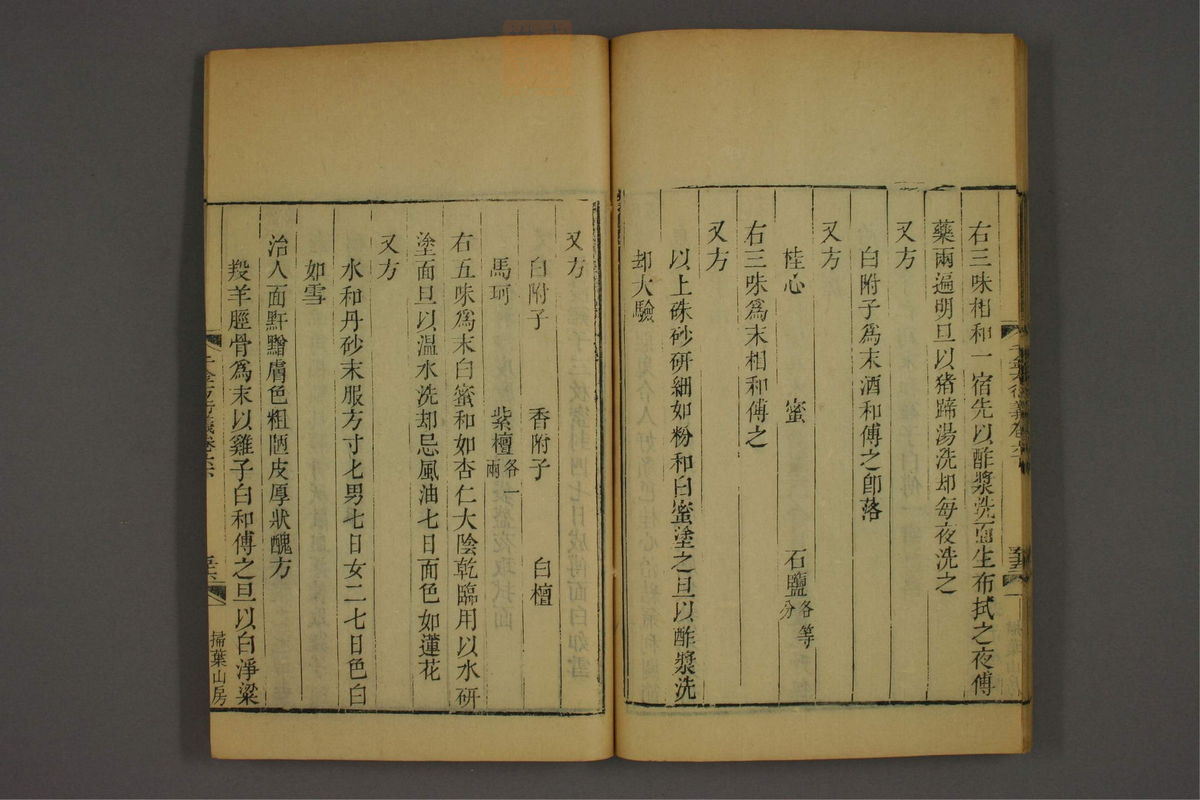 右三味相和一宿先以酢漿洗面生布拭之夜傅
藥兩遍明旦以猪蹄湯洗却每夜洗之
又方
白附子爲末酒和傅之卽落
又方
桂心 蜜 石鹽各等分
右三味爲末相和傅之
又方
以上硃砂研細如粉和白蜜塗之旦以酢漿洗
却大驗
又方
白附子 香附子 白檀
馬珂 紫檀各一兩
右五味爲末白蜜和如杏仁大陰乾臨用以水研
塗面旦以溫水洗却忌風油七日面色如蓮花
又方
水和丹砂末服方寸匕男七日女二七日色白
如雪
治人面䵟䵴膚色粗陋皮厚狀醜方
羖羊脛骨爲末以雞子白和傅之旦以白淨粱
掃葉山房